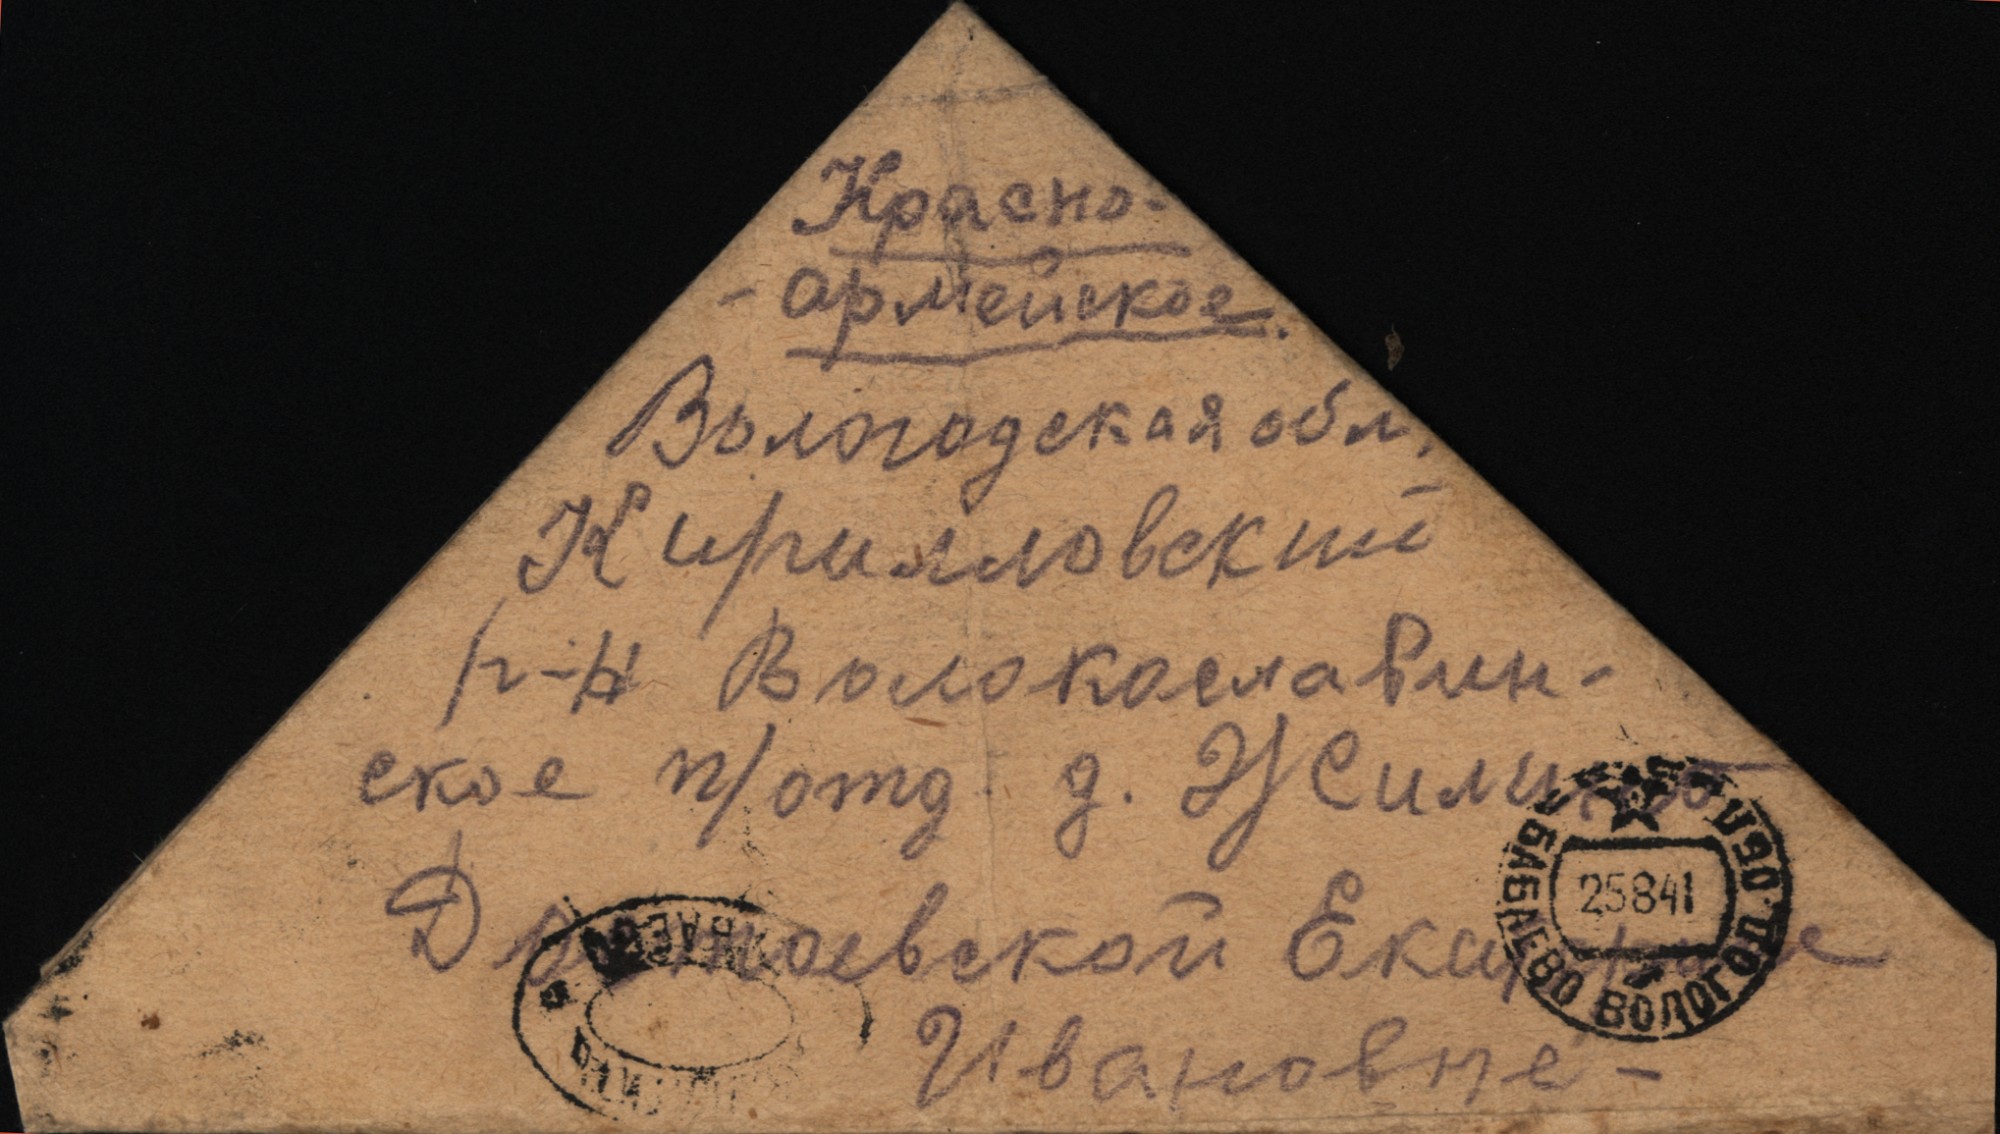 Красно-
- армейское.
Вологодская обл,
Кирилловский
р-н Волокославин-
ское п/отд. д. Жилино
Екатерине
Ивановне -
БАБАЕВО ВОЛОГОД. ОБЛ.
25841